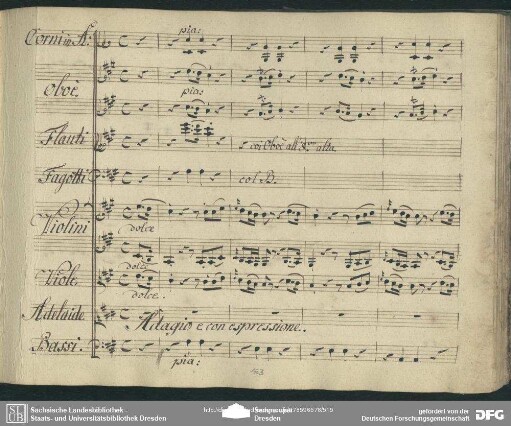 Corni in A:
pia:
Oboè
pia:
Flauti
coi Oboè all' 8.va alta
Fagotti
col B.
Violini
dolce
dolce
Viole
dolce.
Adelaide
Adagio e con espressione.
Bassi.
pia:
163
SLUB
Sächsische Landesbibliothek
Staats- und Universitätsbibliothek Dresden
Dresden
gefördert von der
Deutschen Forschungsgemeinschaft
DFG